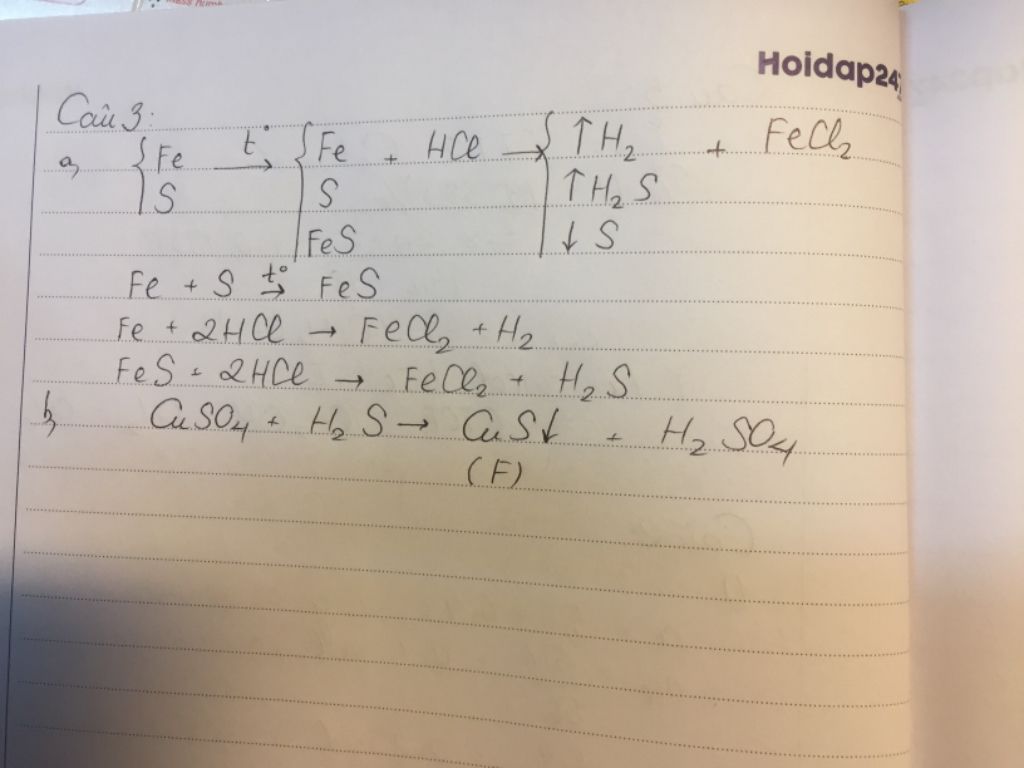 Hoidap247
Câu 3:
a, { Fe t° → { Fe + HCl → { ↑ H₂ + FeCl₂
S S ↑ H₂S
FeS ↓ S
Fe + S t° → FeS
Fe + 2HCl → FeCl₂ + H₂
FeS + 2HCl → FeCl₂ + H₂S
b, CuSO₄ + H₂S → CuS↓ + H₂SO₄
(F)